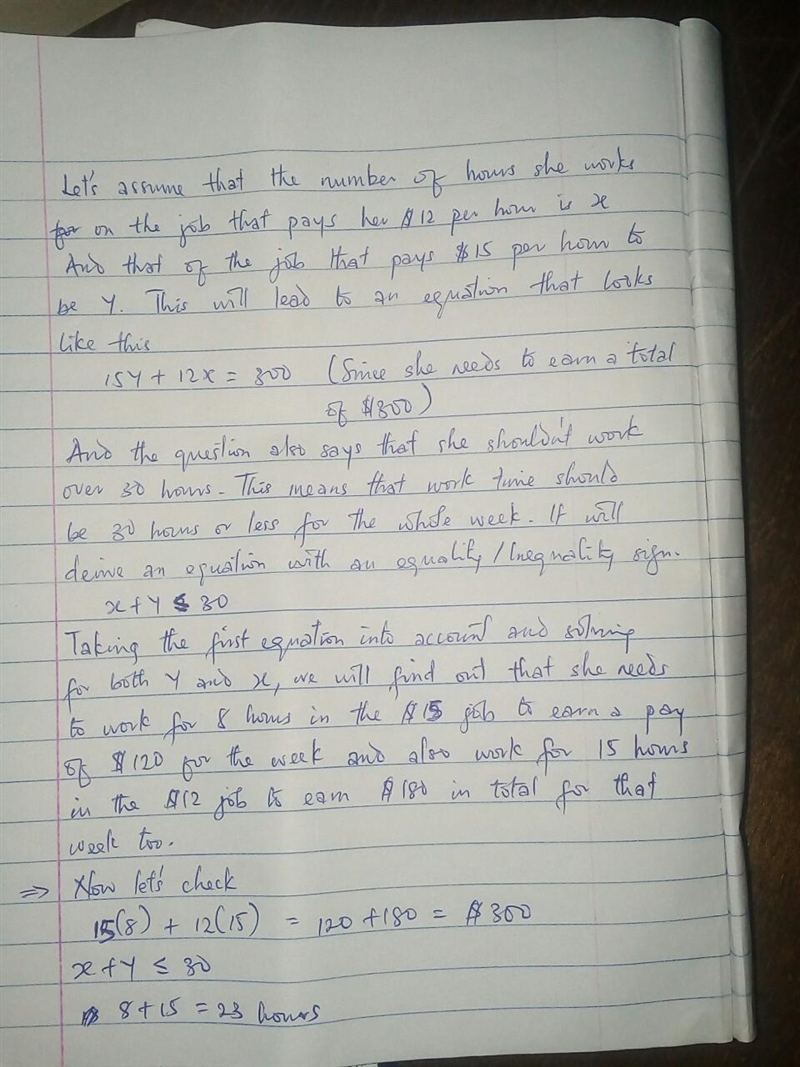 Let's assume that the number of hours she works
for on the job that pays her $12 per hour is x
And that of the job that pays $15 per hour to
be Y. This will lead to an equation that looks
like this
15Y + 12x = 300 (Since she needs to earn a total
of $300)
And the question also says that she shouldn't work
over 30 hours. This means that work time should
be 30 hours or less for the whole week. It will
derive an equation with an equality/Inequality sign.
x + Y ≤ 30
Taking the first equation into account and solving
for both Y and x, we will find out that she needs
to work for 8 hours in the $15 job to earn a pay
of $120 for the week and also work for 15 hours
in the $12 job to earn $180 in total for that
week too.
⇒ Now let's check
15(8) + 12(15) = 120 + 180 = $300
x + Y ≤ 30
8 + 15 = 23 hours